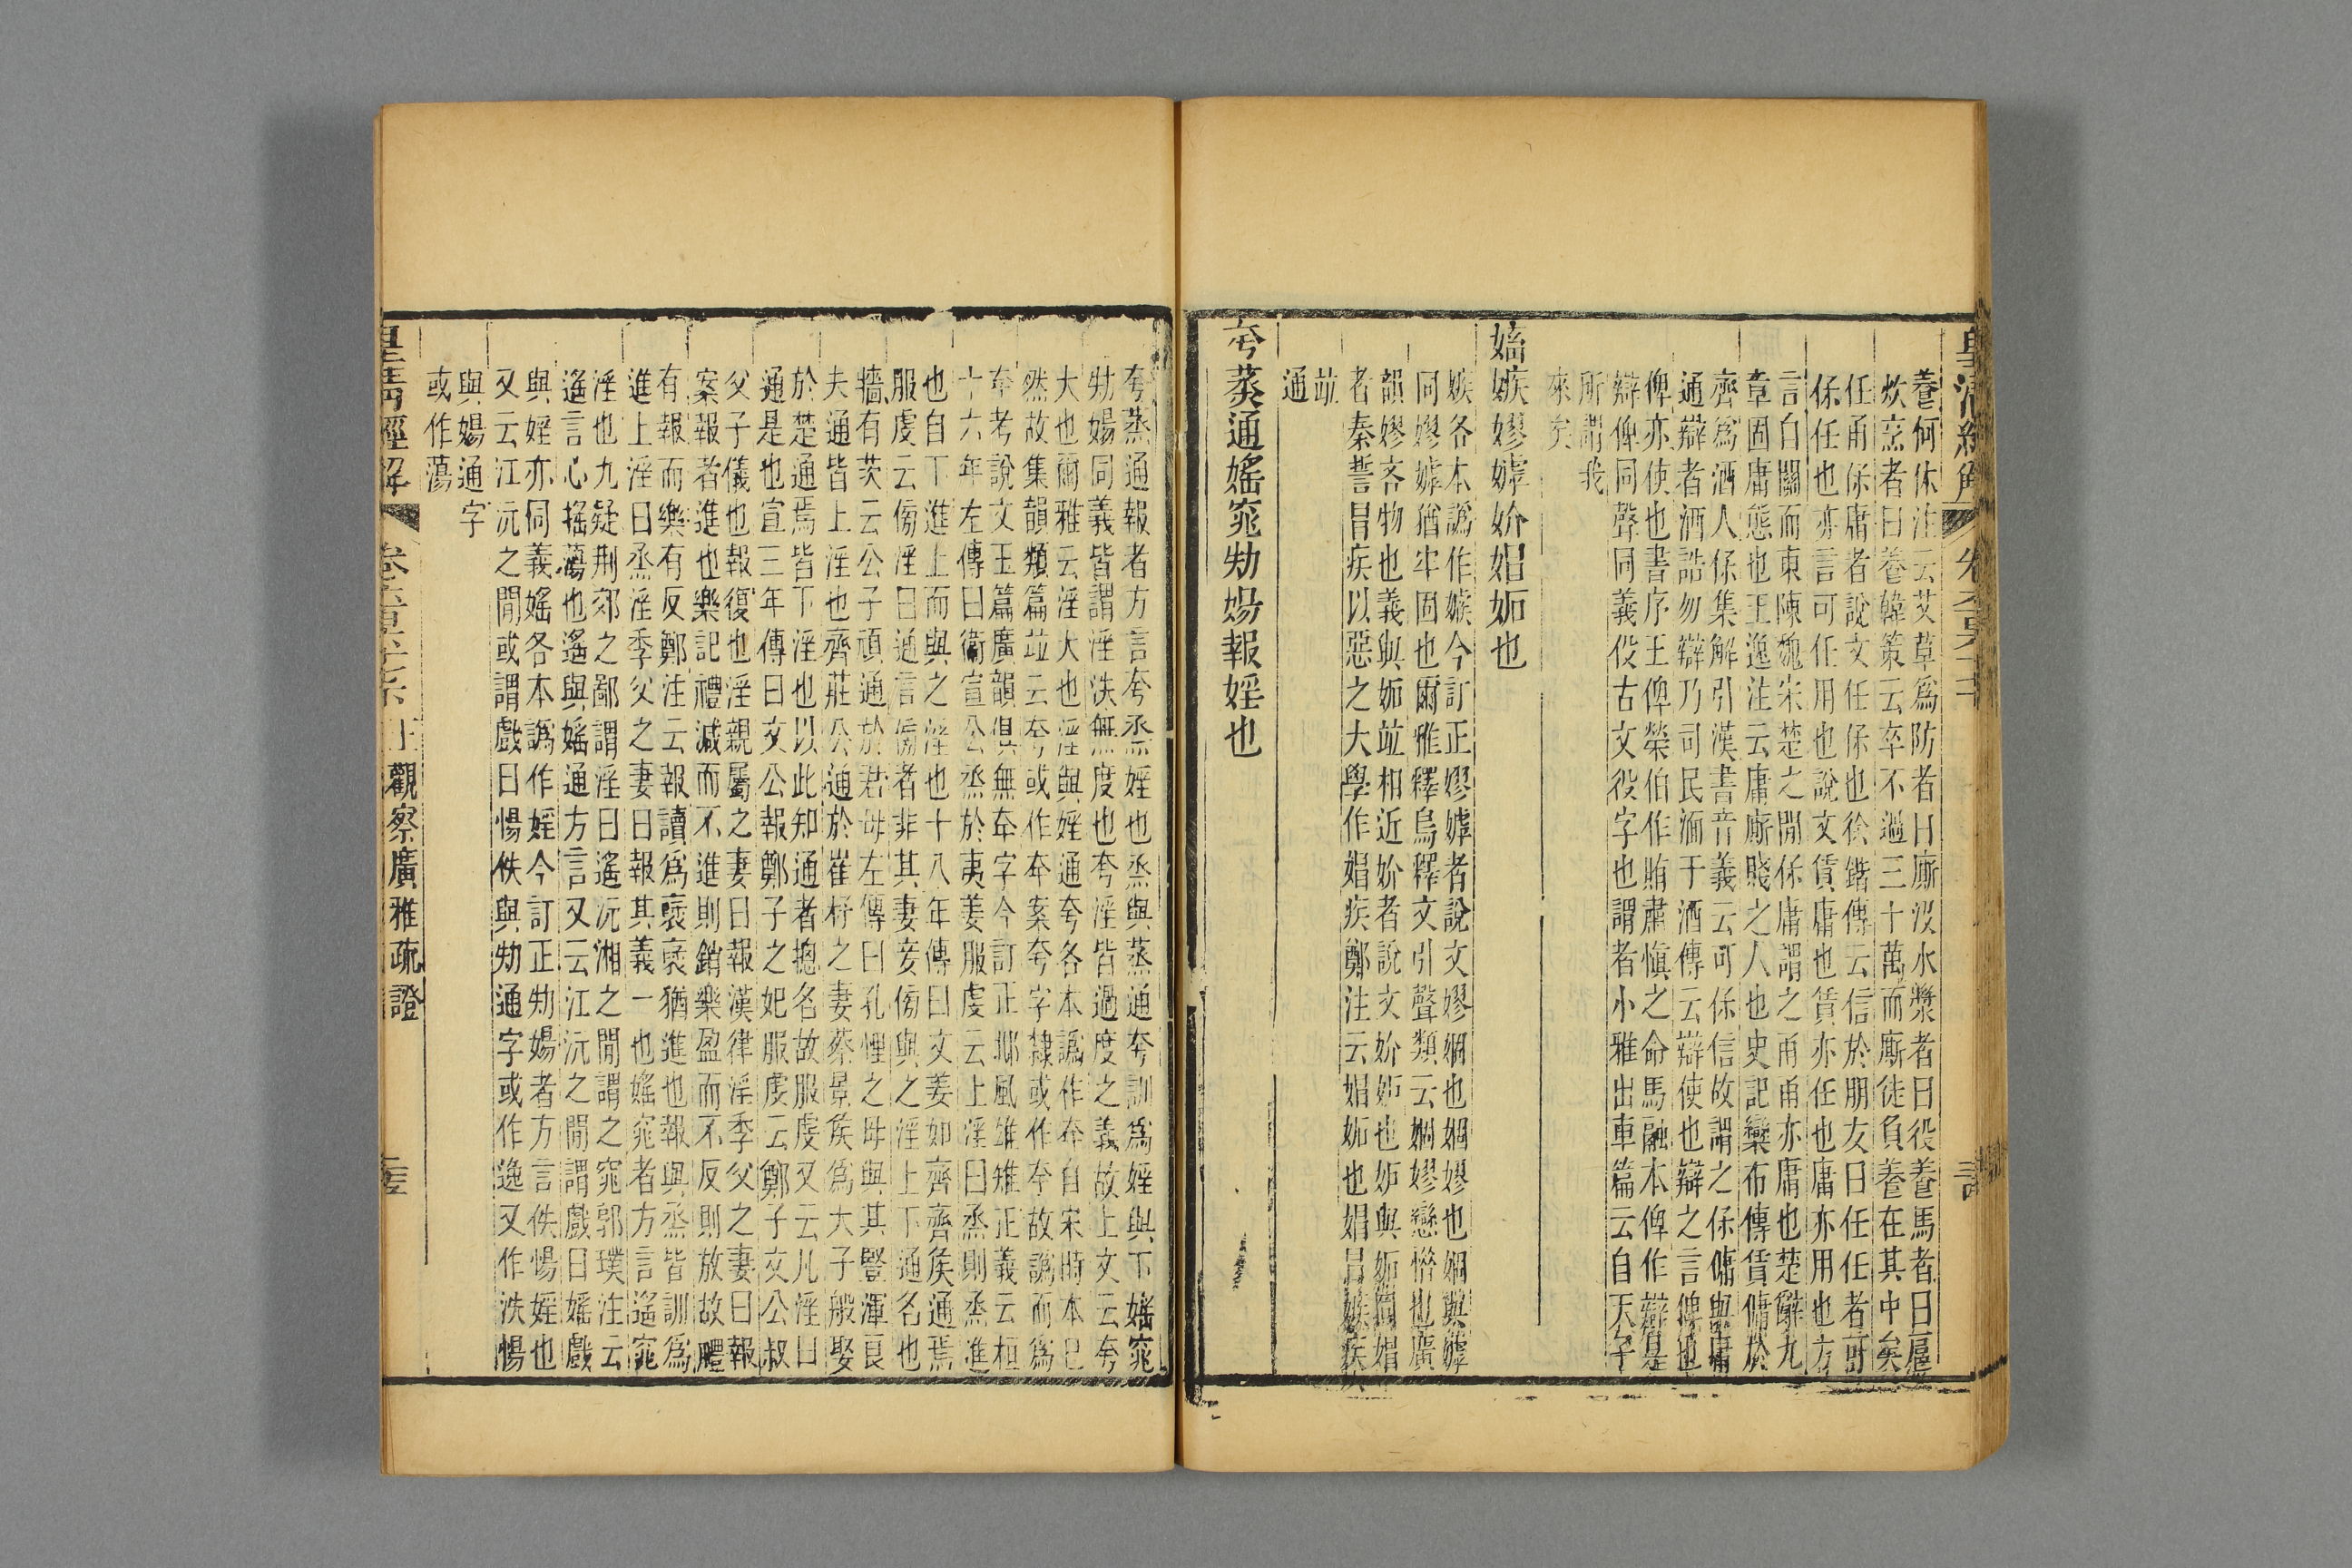 養何休注云艾草爲防者曰廝汲水漿者曰役養馬者曰扈
炊烹者曰養韓策云卒不過三十萬而廝徒負養在其中矣
任甬保庸者說文任保也徐鍇傳云信於朋友曰任任者可
保任也亦言可任用也說文賃庸也賃亦任也庸亦用也方
言曰關而東陳魏宋楚之閒保庸謂之甬甬亦庸也楚辭九
章固庸態也王逸注云庸廝賤之人也史記欒布傳賃傭於
齊爲酒人保集解引漢書音義云可保信故謂之保傭與庸
通辯者酒誥勿辯乃司民湎于酒傳云辯使也辯之言俾也
俾亦使也書序王俾榮伯作賄肅愼之命馬融本俾作辯是
辯俾同聲同義伇古文役字也謂者小雅出車篇云自天子
所謂我
來矣
嫱嫉嫪嫭妎娼妬也
嫉各本譌作嫉今訂正嫪嫭者說文嫪婟也婟嫪也婟與嫭
同嫪嫭猶牢固也爾雅釋鳥釋文引聲類云婟嫪戀惜也廣
韻嫪吝物也義與妬竝相近妎者說文妎妬也妬與妬同娼
者秦誓冒疾以惡之大學作娼疾鄭注云娼妬也娼冒嫉疾
竝
通
夸蒸通媱窕劮婸報婬也
夸蒸通報者方言夸烝婬也烝與蒸通夸訓爲婬與下媱窕
劮婸同義皆謂淫泆無度也夸淫皆過度之義故上文云夸
大也爾雅云淫大也淫與婬通夸各本譌作夲自宋時本已
然故集韻類篇竝云夸或作夲案夸字隸或作夲故譌而爲
夲考說文玉篇廣韻俱無夲字今訂正邶風雄雉正義云桓
十六年左傳曰衞宣公烝於夷姜服虔云上淫曰烝則烝進
也自下進上而與之淫也十八年傳曰文姜如齊齊侯通焉
服虔云傍淫曰通言傍者非其妻妾傍與之淫上下通名也
牆有茨云公子頑通於君母左傳曰孔悝之母與其豎渾良
夫通皆上淫也齊莊公通於崔杼之妻蔡景侯爲大子般娶
於楚通焉皆下淫也以此知通者摠名故服虔又云凡淫曰
通是也宣三年傳曰文公報鄭子之妃服虔云鄭子文公叔
父子儀也報復也淫親屬之妻曰報漢律淫季父之妻曰報
案報者進也樂記禮減而不進則銷樂盈而不反則放故禮
有報而樂有反鄭注云報讀爲裦裦猶進也報與烝皆訓爲
進上淫曰烝淫季父之妻曰報其義一也媱窕者方言遙窕
淫也九疑荆郊之鄙謂淫曰遙沅湘之閒謂之窕郭璞注云
遙言心搖蕩也遙與媱通方言又云江沅之閒謂戲曰媱戲
與婬亦同義媱各本譌作婬今訂正劮婸者方言佚愓婬也
又云江沅之閒或謂戲曰愓佚與劮通字或作逸又作泆愓
與婸通字
或作蕩
觀察廣雅疏證